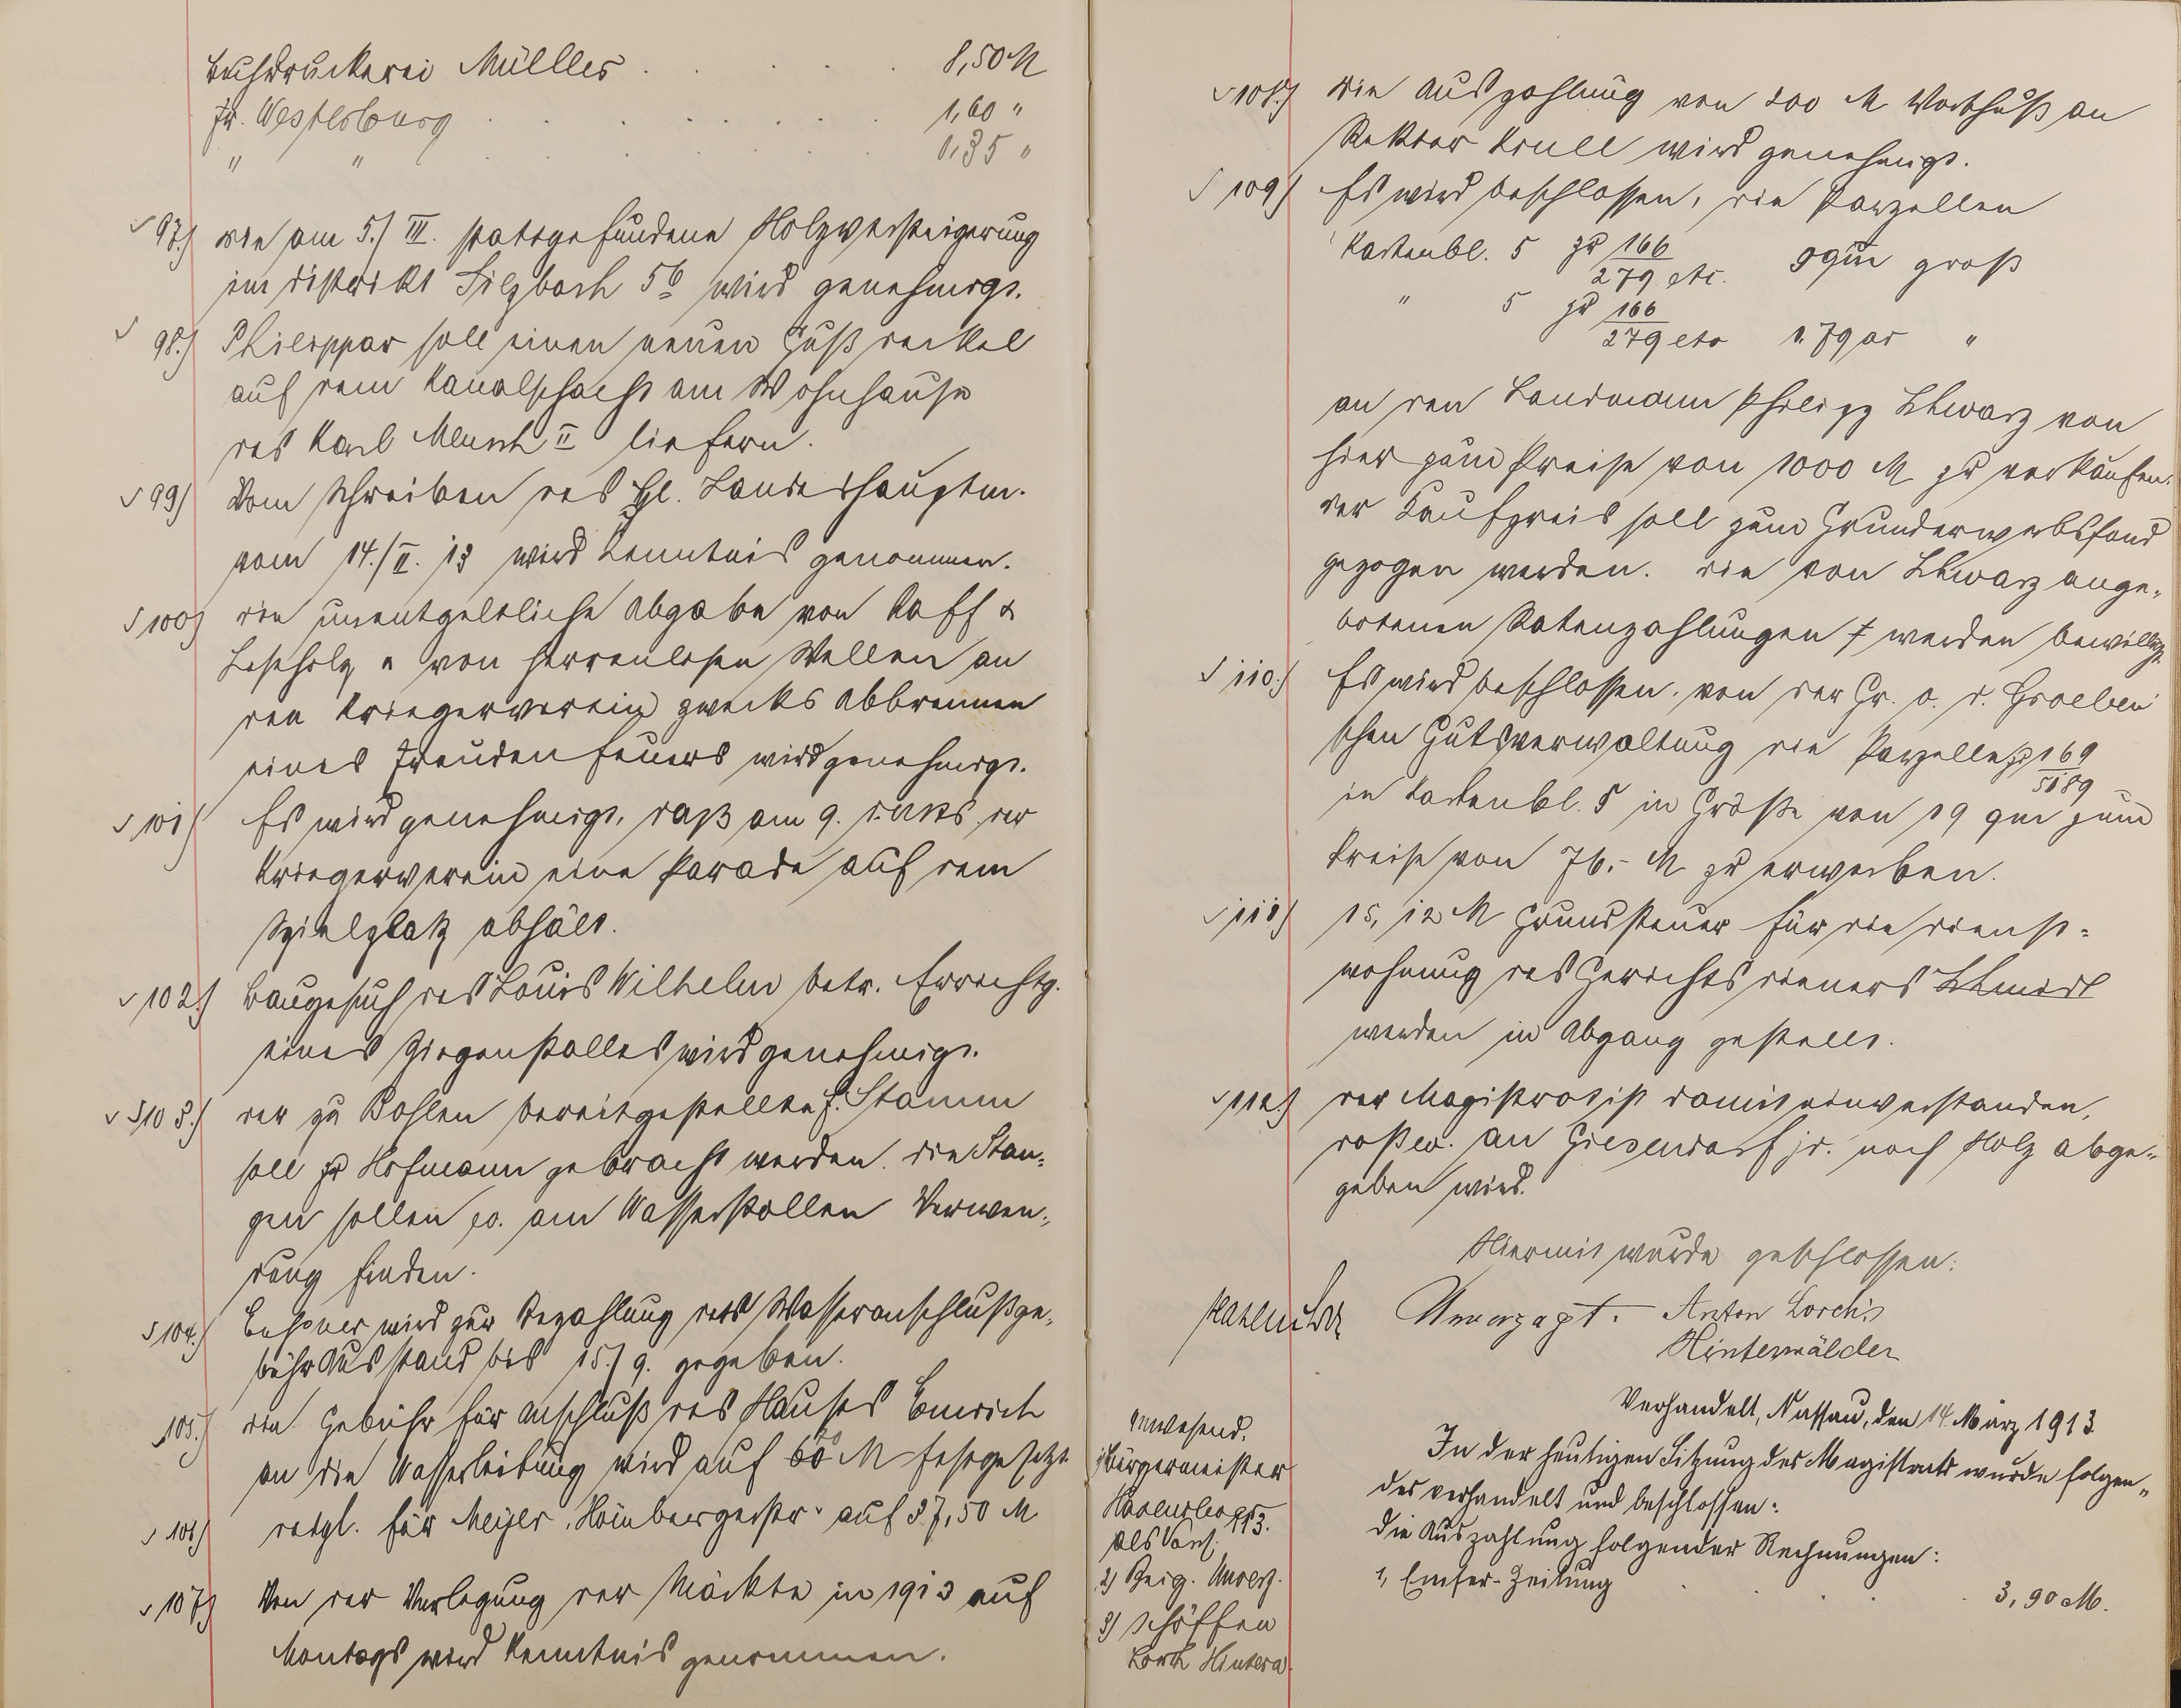 Buchdruckerei Müller . . . . . 8,50 M
Fr. Westerburg . . . . . . . 1,60 "
" " . . . . . . 0,35 "
97.) Die am 5./III. stattgefundene Holzversteigerung
im Distrikt Silzbach 5b wird genehmigt.
98.) Philippar soll einen neuen Gußdeckel
auf dem Kanalschacht am Wohnhause
des Karl Meusch II liefern.
99) Vom Schreiben des Hl. Landeshauptm.
vom 14./II. 13 wird Kenntnis genommen.
100) Die unentgeltliche Abgabe von Raff &
Leseholz u von herrenlosen Wellen an
den Kriegerverein zwecks Abbrennen
eines Freudenfeuers wird genehmigt.
101) Es wird genehmigt, daß am 9. d. Mts. der
Kriegerverein eine Parade auf dem
Spielplatz abhält.
102.) Baugesuch des Louis Wilhelm betr. Errichtg.
eines Ziegenstalles wird genehmigt.
103.) Der zu Bohlen bereitgestellte Stamm
soll zu Hofmann gebracht werden. Die Stan-
gen sollen pp. am Wasserstollen Verwen-
dung finden.
104.) wird zur Bezahlung des Wasseranschlußge-
bühr Ausstand bis 15./9. gegeben.
105.) Die Gebühr für Anschluß des Hauses Emrich
an die Wasserleitung wird auf 60 M festgesetzt
106) desgl. für Meyer, Hömbergerstr. auf 37,50 M
107) Von der Verlegung der Märkte in 1913 auf
Montags wird Kenntnis genommen.
108.) Die Auszahlung von 200 M Vorschuß an
Rektor Krull wird genehmigt.
109) Es wird beschlossen, die Parzellen
Kartenbl. 5 zu 166/279 etc. 9 qm groß
" 5 zu 166/279 etc 1.79 ar "
an den Landmann Philipp Schwarz von
hier zum Preise von 1000 M zu verkaufen.
Der Kaufpreis soll zum Grunderwerbsfond
gezogen werden. Die von Schwarz ange-
botenen Ratenzahlungen werden bewilligt.
110.) Es wird beschlossen, von der Gr. v. d. Groeben
schen Gutsverwaltung die Parzelle zu 169/5189
in Kartenbl. 5 in Größe von 19 qm zum
Preise von 76,- M zu erwerben.
111) 15,12 M Grundsteuer für die Dienst-
wohnung des Gerichtsdieners Schmidt
werden in Abgang gestellt.
112.) Der Magistrat ist damit einverstanden,
daß ev. an Giesendorf jr. noch Holz abge-
geben wird.
Hiermit wurde geschlossen:
Unverzagt. Anton Lorch
Hinterwälder
Verhandelt, Nassau, den 14. März 1913
Anwesend.
1) Bürgermeister
Hasenclever
als Vors.
2) Beig. Unverz.
3) Schöffen
Lorch Hinterw.
In der heutigen Sitzung des Magistrats wurde folgen-
des verhandelt und beschlossen:
113. Die Auszahlung folgender Rechnungen:
1, Emser-Zeitung . . . 3,90 M.